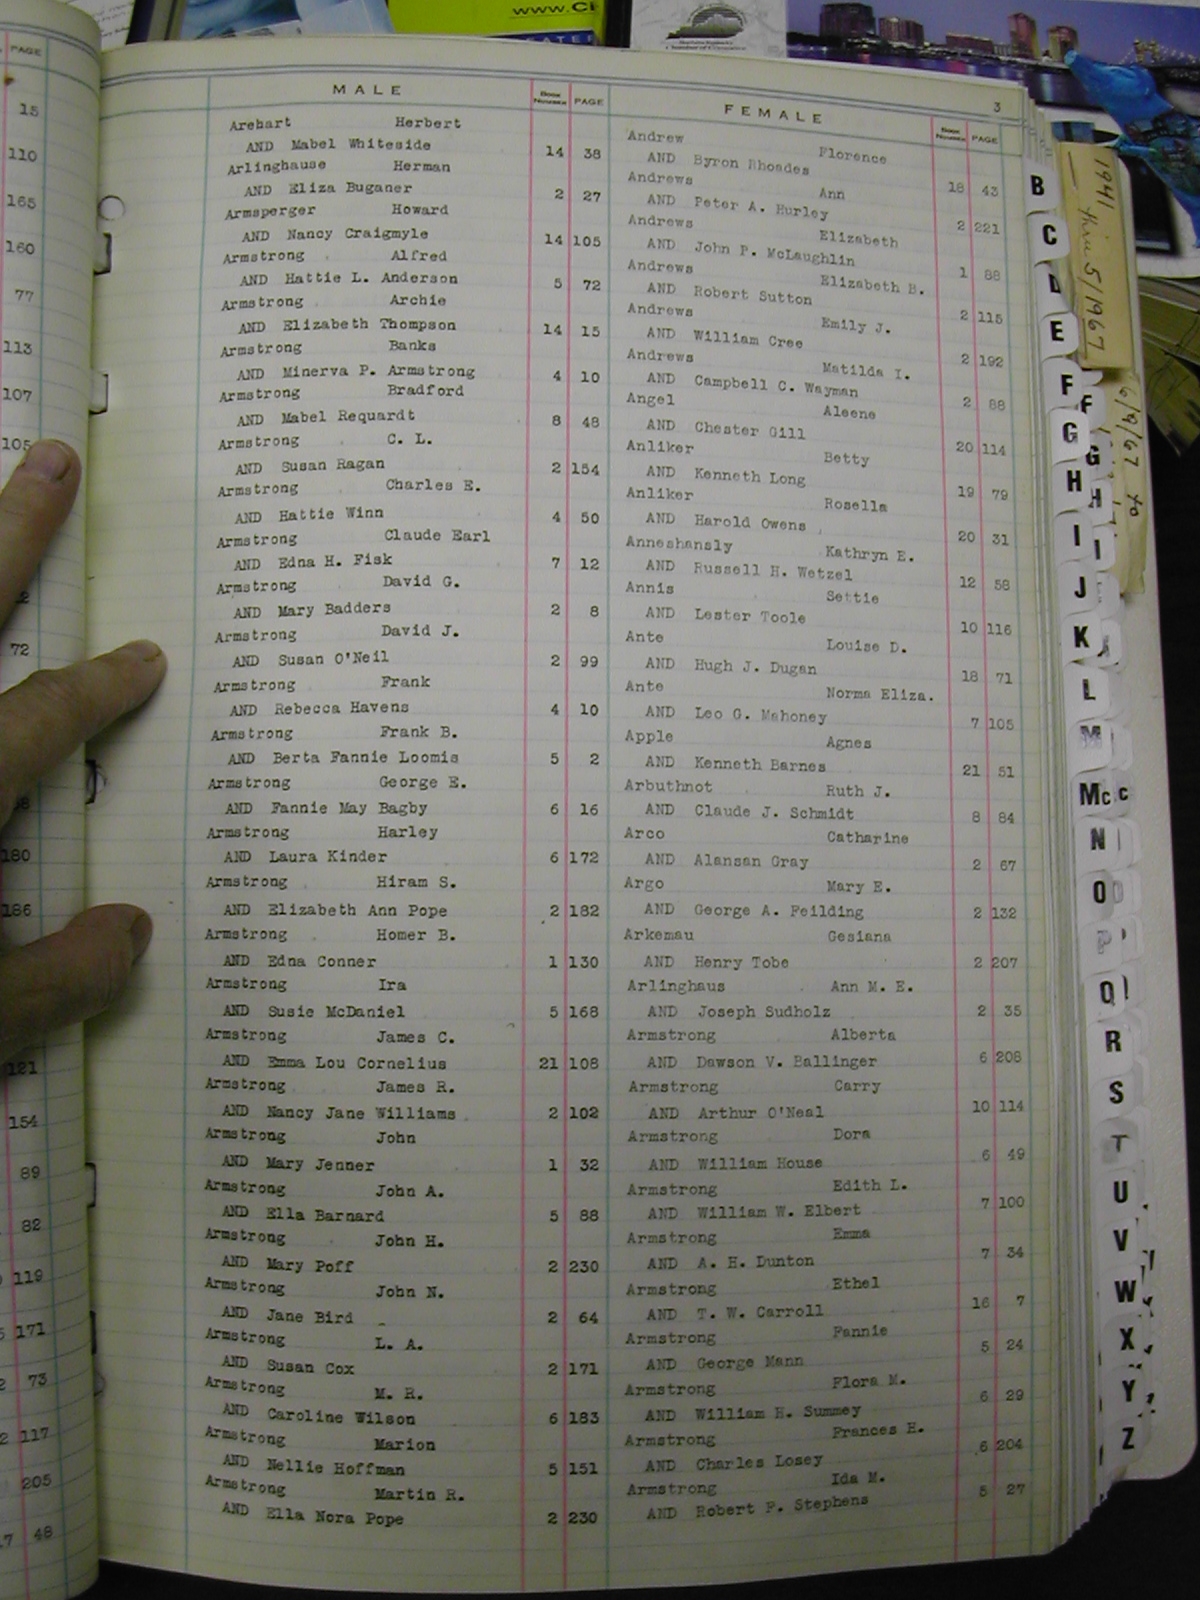 www.C
3
MALE
BOOK NUMBER PAGE
Arehart Herbert
AND Mabel Whiteside 14 38
Arlinghause Herman
AND Eliza Buganer 2 27
Armsperger Howard
AND Nancy Craigmyle 14 105
Armstrong Alfred
AND Hattie L. Anderson 5 72
Armstrong Archie
AND Elizabeth Thompson 14 15
Armstrong Banks
AND Minerva P. Armstrong 4 10
Armstrong Bradford
AND Mabel Requardt 8 48
Armstrong C. L.
AND Susan Ragan 2 154
Armstrong Charles E.
AND Hattie Winn 4 50
Armstrong Claude Earl
AND Edna H. Fisk 7 12
Armstrong David G.
AND Mary Badders 2 8
Armstrong David J.
AND Susan O'Neil 2 99
Armstrong Frank
AND Rebecca Havens 4 10
Armstrong Frank B.
AND Berta Fannie Loomis 5 2
Armstrong George E.
AND Fannie May Bagby 6 16
Armstrong Harley
AND Laura Kinder 6 172
Armstrong Hiram S.
AND Elizabeth Ann Pope 2 182
Armstrong Homer B.
AND Edna Conner 1 130
Armstrong Ira
AND Susie McDaniel 5 168
Armstrong James C.
AND Emma Lou Cornelius 21 108
Armstrong James R.
AND Nancy Jane Williams 2 102
Armstrong John
AND Mary Jenner 1 32
Armstrong John A.
AND Ella Barnard 5 88
Armstrong John H.
AND Mary Poff 2 230
Armstrong John N.
AND Jane Bird 2 64
Armstrong L. A.
AND Susan Cox 2 171
Armstrong M. R.
AND Caroline Wilson 6 183
Armstrong Marion
AND Nellie Hoffman 5 151
Armstrong Martin R.
AND Ella Nora Pope 2 230
FEMALE
BOOK NUMBER PAGE
Andrew Florence
AND Byron Rhoades 18 43
Andrews Ann
AND Peter A. Hurley 2 221
Andrews Elizabeth
AND John P. McLaughlin 1 88
Andrews Elizabeth B.
AND Robert Sutton 2 115
Andrews Emily J.
AND William Cree 2 192
Andrews Matilda I.
AND Campbell C. Wayman 2 88
Angel Aleene
AND Chester Gill 20 114
Anliker Betty
AND Kenneth Long 19 79
Anliker Rosella
AND Harold Owens 20 31
Anneshansly Kathryn E.
AND Russell H. Wetzel 12 58
Annis Settie
AND Lester Toole 10 116
Ante Louise D.
AND Hugh J. Dugan 18 71
Ante Norma Eliza.
AND Leo G. Mahoney 7 105
Apple Agnes
AND Kenneth Barnes 21 51
Arbuthnot Ruth J.
AND Claude J. Schmidt 8 84
Arco Catharine
AND Alansan Gray 2 67
Argo Mary E.
AND George A. Feilding 2 132
Arkemau Gesiana
AND Henry Tobe 2 207
Arlinghaus Ann M. E.
AND Joseph Sudholz 2 35
Armstrong Alberta
AND Dawson V. Ballinger 6 208
Armstrong Carry
AND Arthur O'Neal 10 114
Armstrong Dora
AND William House 6 49
Armstrong Edith L.
AND William W. Elbert 7 100
Armstrong Emma
AND A. H. Dunton 7 34
Armstrong Ethel
AND T. W. Carroll 16 7
Armstrong Fannie
AND George Mann 5 24
Armstrong Flora M.
AND William H. Summey 6 29
Armstrong Frances H.
AND Charles Losey 6 204
Armstrong Ida M.
AND Robert P. Stephens 5 27
PAGE
15
110
165
160
77
113
107
105
72
180
186
121
154
89
82
119
171
73
117
205
48
1941 thru 5/1967
6/9/67 to
B
C
D
E
F
F
G
G
H
H
I
I
J
K
L
M
Mc
N
O
P
Q
R
S
T
U
V
W
X
Y
Z